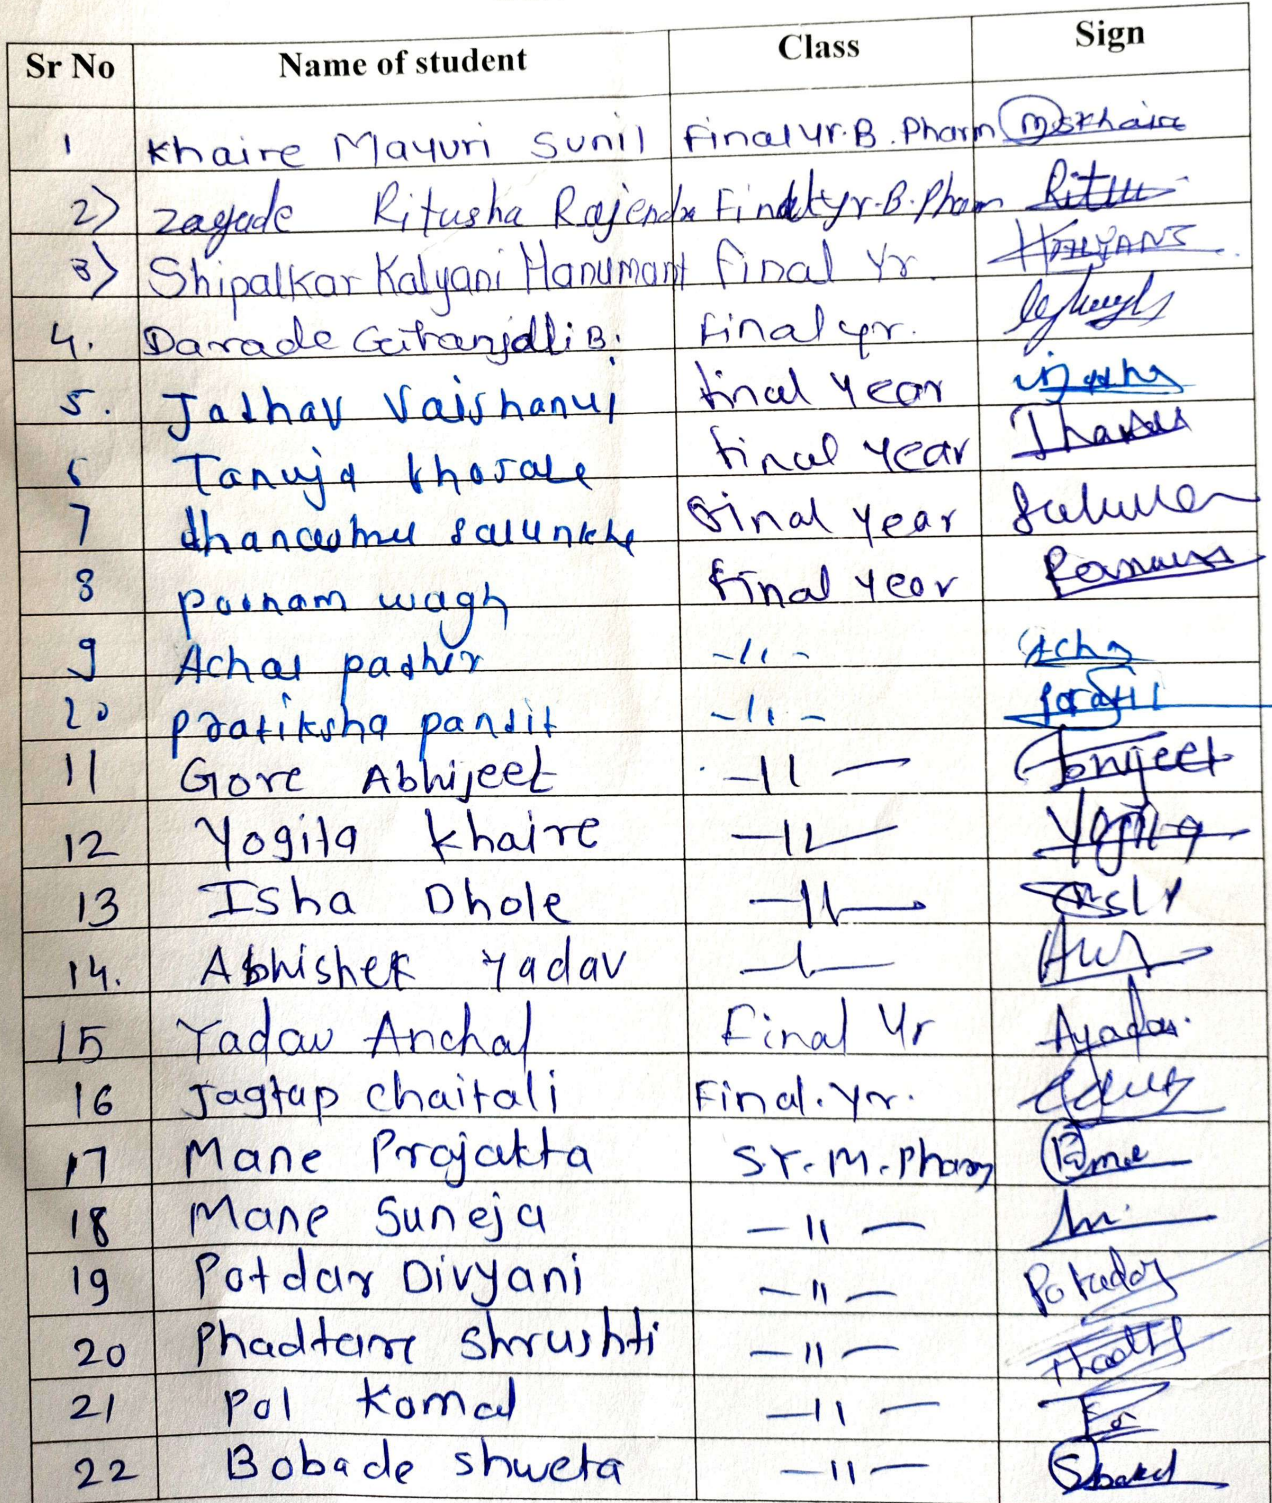 Sr No Name of student Class Sign
1 Khaire Mayuri Sunil Final yr. B. Pharm MSKhaire
2) Zagade Ritusha Rajendra Final yr. B. Pharm Ritu
3) Shipalkar Kalyani Hanumant Final Yr. KALYANI
4. Darade Gitanjali B. Final yr.
5. Jadhav Vaishanvi Final Year
6 Tanuja Khorale Final Year
7 Salunkhe Final Year
8 Poonam wagh Final Year
9 Achal padhir -11-
20 Pratiksha pandit -11-
11 Gore Abhijeet -11-
12 Yogita Khaire -11- Yogita
13 Isha Dhole -11-
14. Abhishek Yadav -11-
15 Yadav Anchal Final Yr Ayadav.
16 Jagtap chaitali Final. Yr.
17 Mane Prajakta S.Y. M. Pharm
18 Mane Suneja -11-
19 Potdar Divyani -11-
20 Phadtare shrushti -11-
21 Pol Komal -11-
22 Bobade shweta -11-